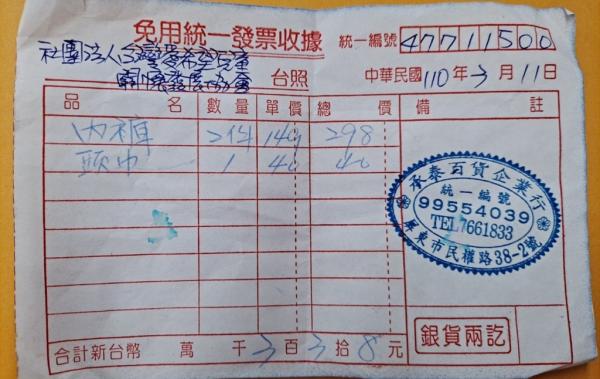 免用統一發票收據 統一編號 47711500
社團法人台灣愛希望兒童
關懷發展協會 台照 中華民國110年3月11日
品名 數量 單價 總價 備註
內褲 2件 149 298
頭巾 1 40 40
承泰百貨企業行
統一編號
99554039
TEL7661833
屏東市民權路38-2號
銀貨兩訖
合計新台幣 萬 千 3 百 3 拾 8 元